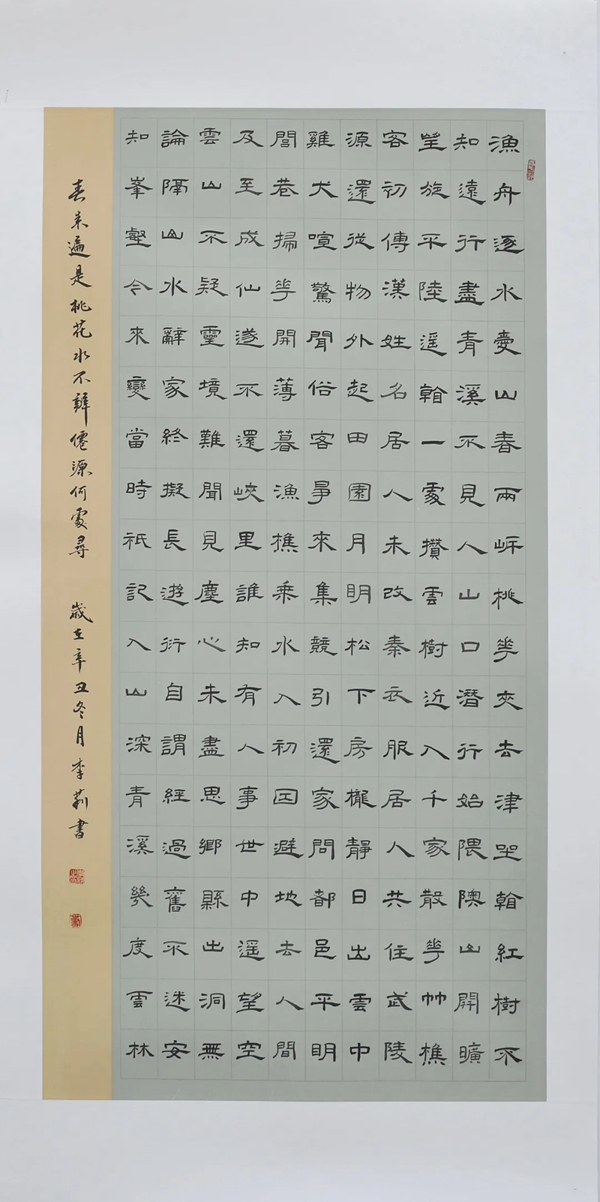 漁舟逐水愛山春兩岍桃華夾去津坐看紅樹不
知遠行盡青溪不見人山口潛行始隈隩山開曠
望旋平陸遥看一處攢雲樹近入千家散華竹樵
客初傳漢姓名居人未改秦衣服居人共住武陵
源還從物外起田園月明松下房櫳靜日出雲中
雞犬喧驚聞俗客爭來集競引還家問都邑平明
閭巷掃華開薄暮漁樵乘水入初因避地去人間
及至成仙遂不還峽里誰知有人事世中遥望空
雲山不疑靈境難聞見塵心未盡思鄉縣出洞無
論隔山水辭家終擬長遊衍自謂經過舊不迷安
知峯壑今來變當時祇記入山深青溪幾度雲林
春来遍是桃花水不辨僊源何處尋 歲在辛丑冬月李莉書